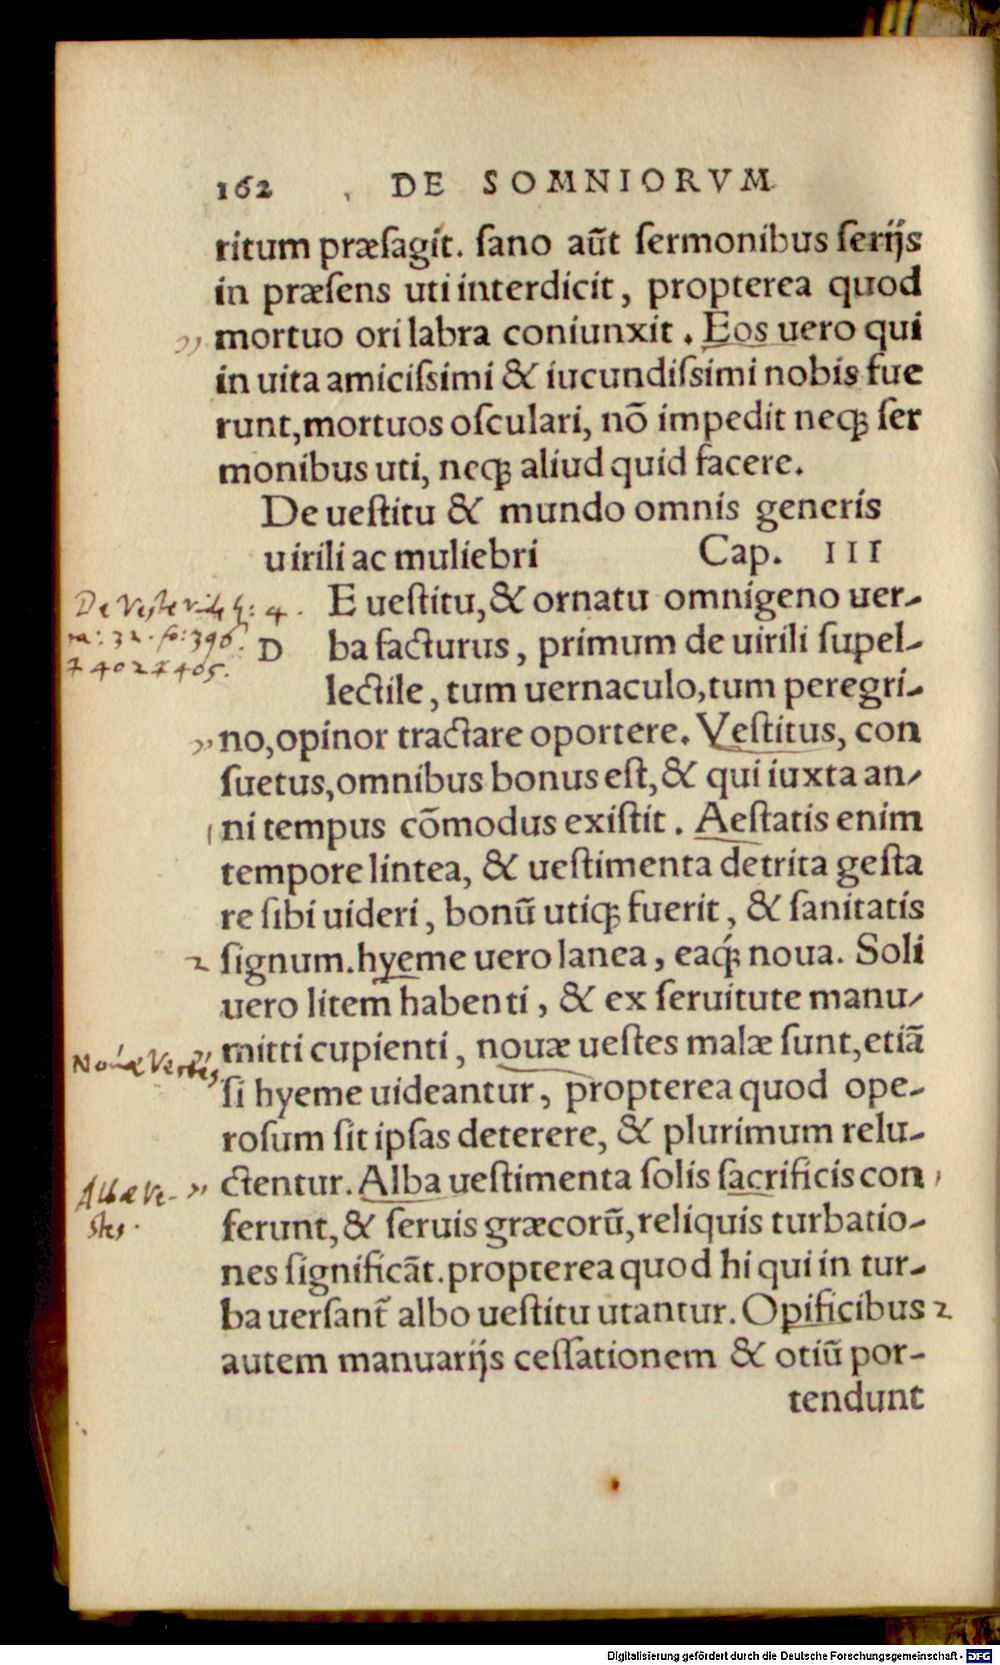 162 DE SOMNIORVM
ritum præsagit. sano aũt sermonibus serijs
in præsens uti interdicit, propterea quod
mortuo ori labra coniunxit. Eos uero qui
in uita amicissimi & iucundissimi nobis fue
runt, mortuos osculari, nõ impedit neq; ser
monibus uti, neq; aliud quid facere.
De uestitu & mundo omnis generis
uirili ac muliebri Cap. III
De Veste vide h: 4.
ra: 32. fo: 396.
& 402 & 405.
D E uestitu, & ornatu omnigeno uer-
ba facturus, primum de uirili supel-
lectile, tum uernaculo, tum peregri-
no, opinor tractare oportere. Vestitus, con
suetus, omnibus bonus est, & qui iuxta an-
ni tempus cõmodus existit. Aestatis enim
tempore lintea, & uestimenta detrita gesta
re sibi uideri, bonũ utiq; fuerit, & sanitatis
2 signum. hyeme uero lanea, eaq́; noua. Soli
uero litem habenti, & ex seruitute manu-
Novæ Vestes
mitti cupienti, nouæ uestes malæ sunt, etiã
si hyeme uideantur, propterea quod ope-
rosum sit ipsas deterere, & plurimum relu-
Albæ Ve-
stes.
ctentur. Alba uestimenta solis sacrificis con
ferunt, & seruis græcorũ, reliquis turbatio-
nes significãt. propterea quod hi qui in tur-
ba uersant̃ albo uestitu utantur. Opificibus 2
autem manuarijs cessationem & otiũ por-
tendunt
Digitalisierung gefördert durch die Deutsche Forschungsgemeinschaft - DFG